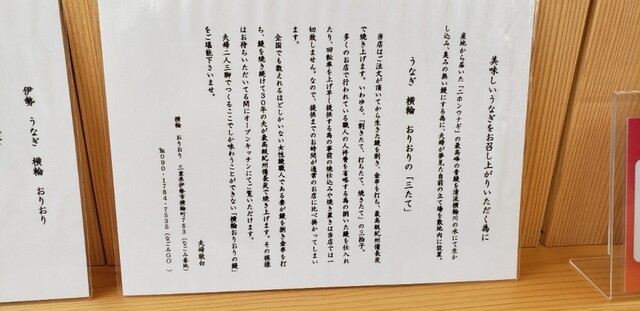 美味しいうなぎをお召し上がりいただく為に
産地から届いた「ニホンウナギ」の最高峰の青鰻を清流横輪川の水にて生か
し込み、臭みの無い鰻にする為に、夫婦が夢見た自前の立て場を敷地内に設置。
うなぎ 横輪 おりおりの「三たて」
当店はご注文が頂いてから生きた鰻を割き、金串を打ち、最高級紀州備長炭
で焼き上げます。いわゆる、「割きたて、打ちたて、焼きたて」の三拍子。
多くのお店で行われている職人の人件費を省略する為の捌いた鰻を仕入れ
たり、回転率を上げ早く提供する為の事前の焼仕込みや焼き置きは当店では一
切致しません。なので、提供までのお時間が通常のお店に比べ掛かってしまい
ます。
全国でも数えれるほどしかいない女性鰻職人である妻が鰻を割き金串を打
ち、鰻を焼き続けて30年の夫が最高級紀州備長炭で焼き上げます。その模様
はお待ちいただいてる間にオープンキッチンにてご覧いただけます。
夫婦二人三脚でつくるここでしか味わうことができない「横輪おりおりの鰻」
をご堪能下さいませ。
夫婦敬白
横輪 おりおり 三重県伊勢市横輪町753（なごみ番地）
℡090-1784-7535（なごみGO）
伊勢 うなぎ 横輪 おりおり